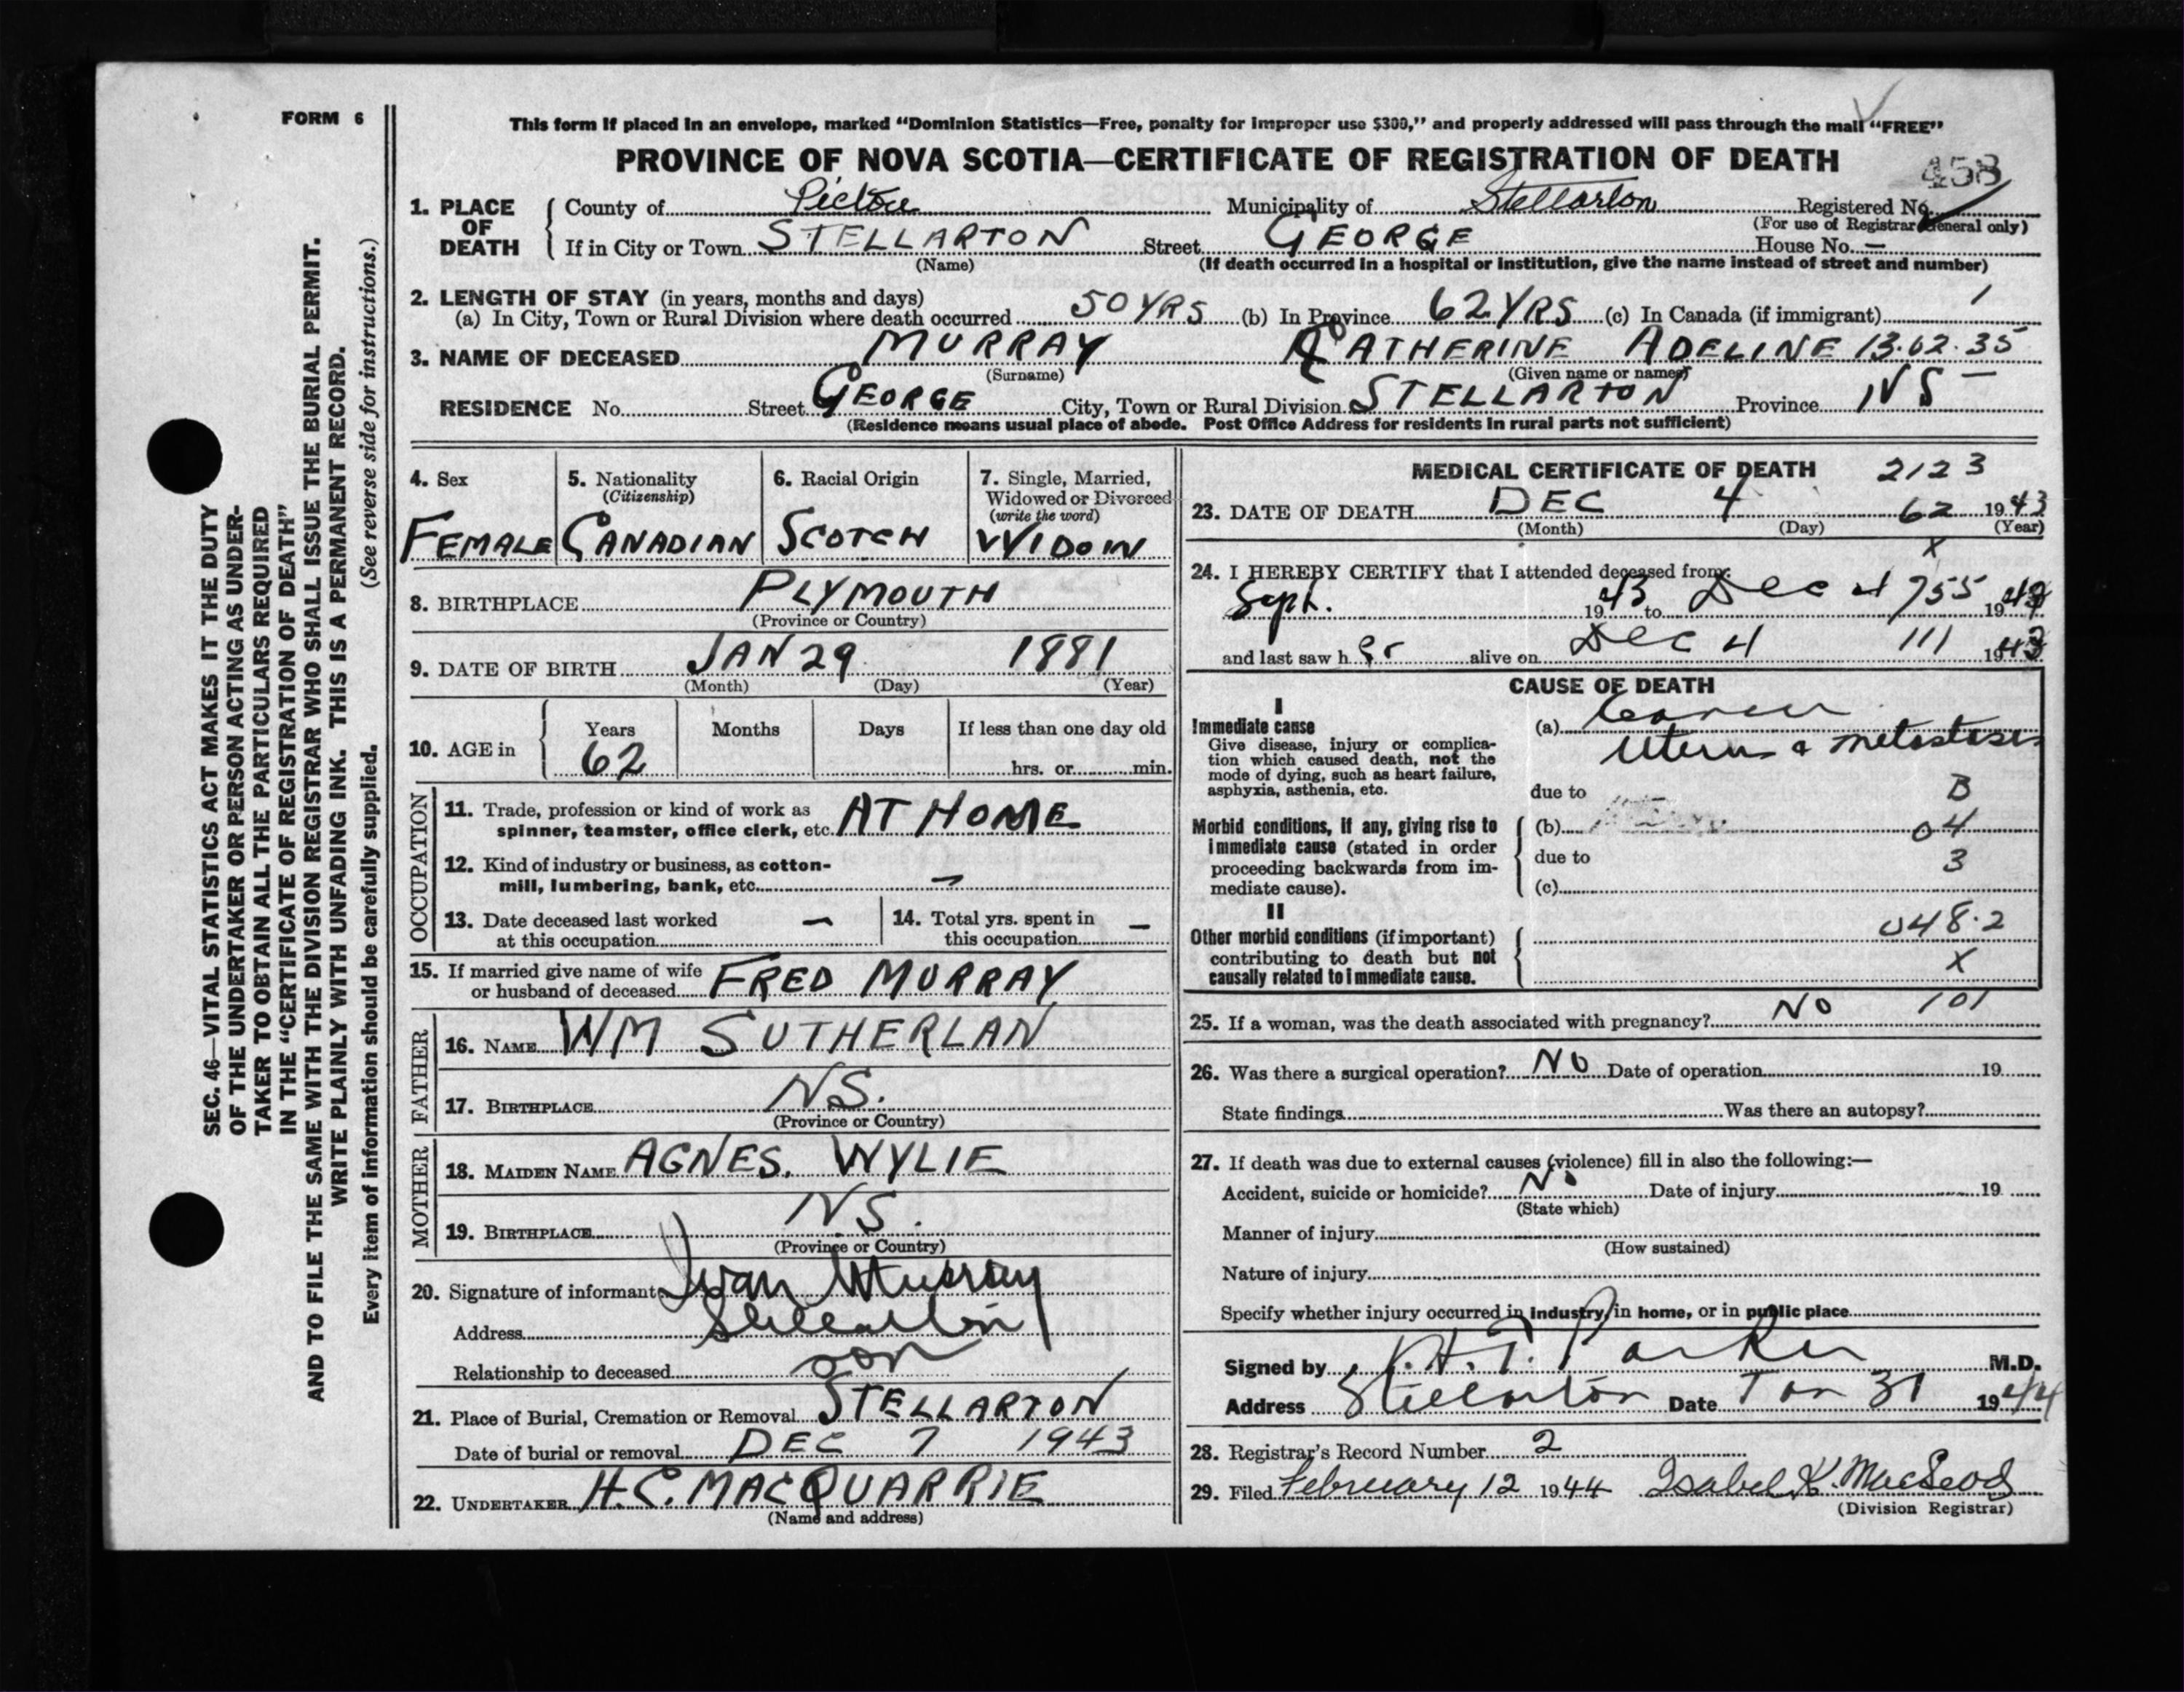 FORM 6
SEC. 46—VITAL STATISTICS ACT MAKES IT THE DUTY
OF THE UNDERTAKER OR PERSON ACTING AS UNDER-
TAKER TO OBTAIN ALL THE PARTICULARS REQUIRED
IN THE "CERTIFICATE OF REGISTRATION OF DEATH"
AND TO FILE THE SAME WITH THE DIVISION REGISTRAR WHO SHALL ISSUE THE BURIAL PERMIT.
WRITE PLAINLY WITH UNFADING INK. THIS IS A PERMANENT RECORD.
Every item of information should be carefully supplied. (See reverse side for instructions.)
This form if placed in an envelope, marked "Dominion Statistics—Free, penalty for improper use $300," and properly addressed will pass through the mail "FREE"
PROVINCE OF NOVA SCOTIA—CERTIFICATE OF REGISTRATION OF DEATH
458
1. PLACE OF DEATH County of Pictou Municipality of Stellarton Registered No.
(For use of Registrar General only)
If in City or Town STELLARTON Street GEORGE House No. —
(Name) (If death occurred in a hospital or institution, give the name instead of street and number)
2. LENGTH OF STAY (in years, months and days)
(a) In City, Town or Rural Division where death occurred 50 YRS (b) In Province 62 YRS (c) In Canada (if immigrant) /
3. NAME OF DECEASED MURRAY CATHERINE ADELINE 13.02.35
(Surname) (Given name or names)
RESIDENCE No. Street GEORGE City, Town or Rural Division STELLARTON Province NS
(Residence means usual place of abode. Post Office Address for residents in rural parts not sufficient)
4. Sex 5. Nationality (Citizenship) 6. Racial Origin 7. Single, Married, Widowed or Divorced (write the word)
FEMALE CANADIAN SCOTCH WIDOW
8. BIRTHPLACE PLYMOUTH
(Province or Country)
9. DATE OF BIRTH JAN 29 1881
(Month) (Day) (Year)
10. AGE in Years Months Days If less than one day old
62 hrs. or min.
OCCUPATION
11. Trade, profession or kind of work as
spinner, teamster, office clerk, etc. AT HOME
12. Kind of industry or business, as cotton-
mill, lumbering, bank, etc. —
13. Date deceased last worked at this occupation — 14. Total yrs. spent in this occupation —
15. If married give name of wife
or husband of deceased FRED MURRAY
FATHER
16. NAME WM SUTHERLAN
17. BIRTHPLACE NS.
(Province or Country)
MOTHER
18. MAIDEN NAME AGNES. WYLIE
19. BIRTHPLACE NS.
(Province or Country)
20. Signature of informant Ivan Murray
Address Stellarton
Relationship to deceased son
21. Place of Burial, Cremation or Removal STELLARTON
Date of burial or removal DEC 7 1943
22. UNDERTAKER H.C. MACQUARRIE
(Name and address)
MEDICAL CERTIFICATE OF DEATH 2123
23. DATE OF DEATH DEC 4 62 1943
(Month) (Day) (Year)
X
24. I HEREBY CERTIFY that I attended deceased from:
Sept. 1943 to Dec 4 755 19
and last saw her alive on Dec 4 111 1943
CAUSE OF DEATH
I
Immediate cause
Give disease, injury or complica-
tion which caused death, not the
mode of dying, such as heart failure,
asphyxia, asthenia, etc.
(a) Cancer
Uterus metastases
due to B
Morbid conditions, if any, giving rise to
immediate cause (stated in order
proceeding backwards from im-
mediate cause).
(b) 04
due to 3
(c)
II
Other morbid conditions (if important)
contributing to death but not
causally related to immediate cause.
048.2
X
25. If a woman, was the death associated with pregnancy? NO 101
26. Was there a surgical operation? NO Date of operation 19
State findings Was there an autopsy?
27. If death was due to external causes (violence) fill in also the following:—
Accident, suicide or homicide? No Date of injury 19
(State which)
Manner of injury
(How sustained)
Nature of injury
Specify whether injury occurred in industry, in home, or in public place
Signed by H. T. Parker M.D.
Address Stellarton Date Jan 31 1944
28. Registrar's Record Number 2
29. Filed February 12 1944 Isabel K. MacLeod
(Division Registrar)